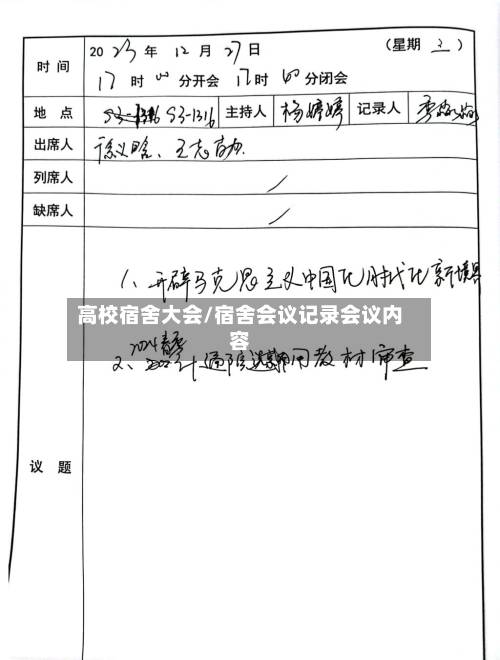 时 间 2023 年 12 月 27 日 (星期 三)
17 时 00 分开会 17 时 40 分闭会
地 点 S3-1316 主持人 杨婷婷 记录人 李
出席人 王志
列席人 /
缺席人 /
议 题
1、开辟马克思主义中国化时代化新境界
高校宿舍大会/宿舍会议记录会议内
容
2024春季
2、教材审查